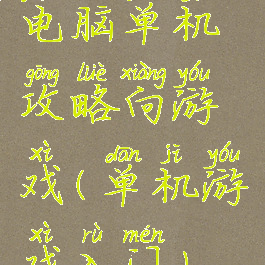 电脑单机
gōng lüè xiàng yóu
攻略向游
xì dān jī yóu
戏(单机游
xì rù mén
戏入门)